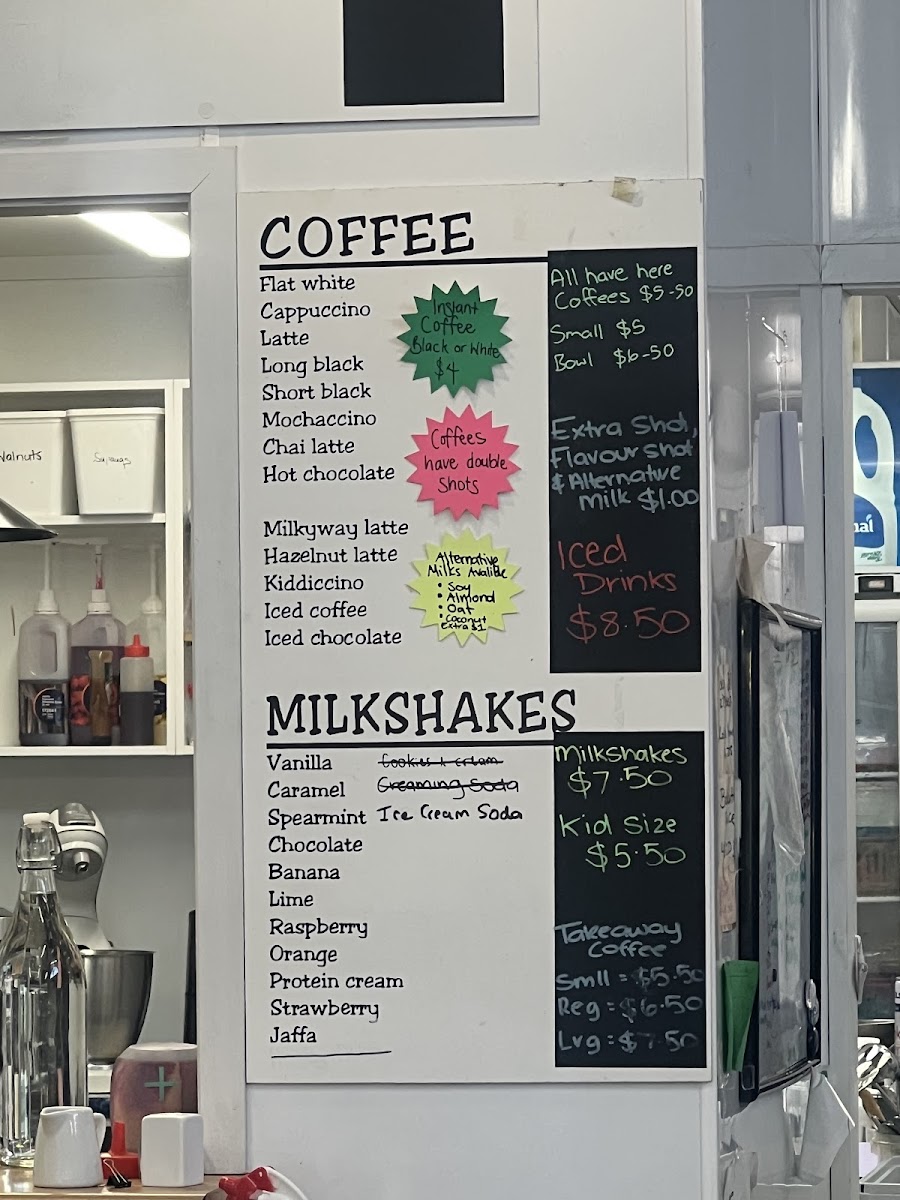 COFFEE
Flat white
Cappuccino
Latte
Long black
Short black
Mochaccino
Chai latte
Hot chocolate
Milkyway latte
Hazelnut latte
Kiddiccino
Iced coffee
Iced chocolate
Instant
Coffee
Black or White
$4
Coffees
have double
Shots
Alternative
Milks Avalible
• Soy
• Almond
• Oat
• Coconut
Extra $1
All have here
Coffees $5-50
Small $5
Bowl $6-50
Extra Shot,
Flavour shot
& Alternative
milk $1.00
Iced
Drinks
$8.50
MILKSHAKES
Vanilla
Caramel
Spearmint
Chocolate
Banana
Lime
Raspberry
Orange
Protein cream
Strawberry
Jaffa
Cookies & cream
Creaming Soda
Ice Cream Soda
Milkshakes
$7.50
Kid Size
$5.50
Takeaway
Coffee
Smll = $5.50
Reg = $6.50
Lvg = $7.50
Walnuts